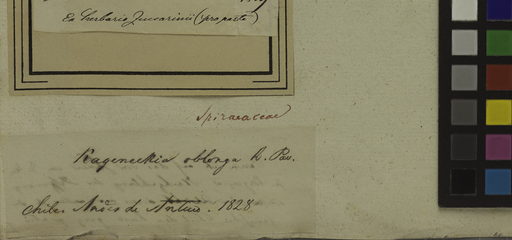 Ex Herbario Zuccarinii (pro parte)
Spiraeaceae
Kageneckia oblonga R. Pav.
Chile. de 1828